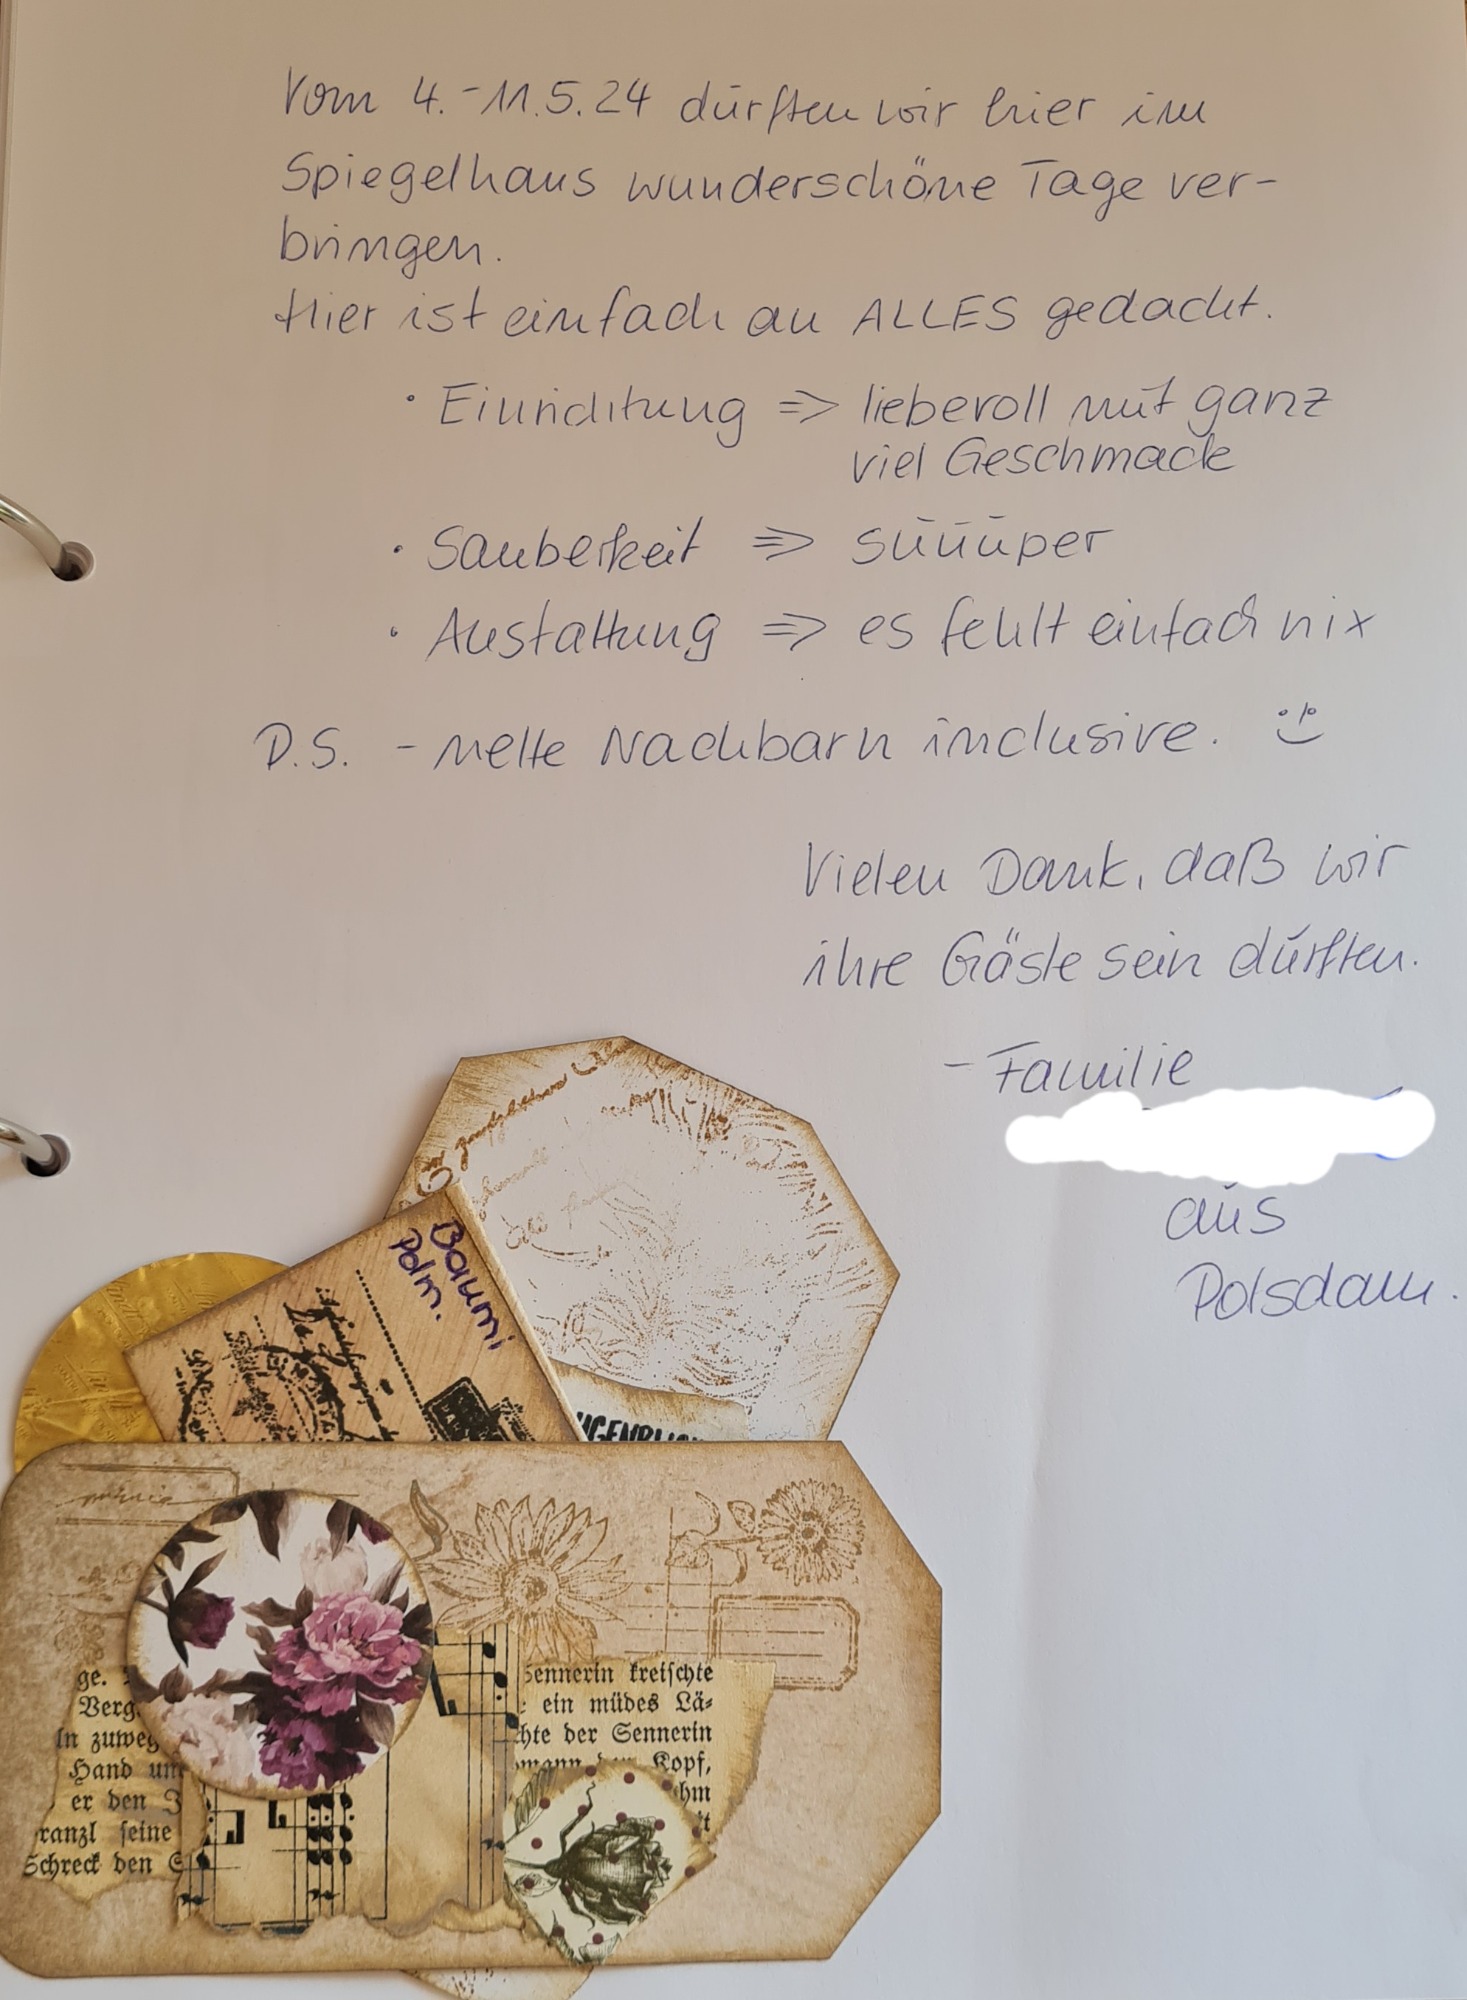 Vom 4.-11.5.24 dürften wir hier im
Spiegelhaus wunderschöne Tage ver-
bringen.
Hier ist einfach an ALLES gedacht.
· Einrichtung => liebevoll mit ganz
viel Geschmack
· Sauberkeit => süüüper
· Austattung => es fehlt einfach nix
P.S. - nette Nachbarn inclusive.
Vielen Dank, daß wir
ihre Gäste sein dürften.
- Familie
aus
Potsdam.
Baumi
Pdm.
UGENBLICK
ge.
Verg
In zuweg
Hand un
er den
ranzl seine
Schreck den
Sennerin kreischte
ein müdes Lä-
chte der Sennerin
mann den Kopf,
hm